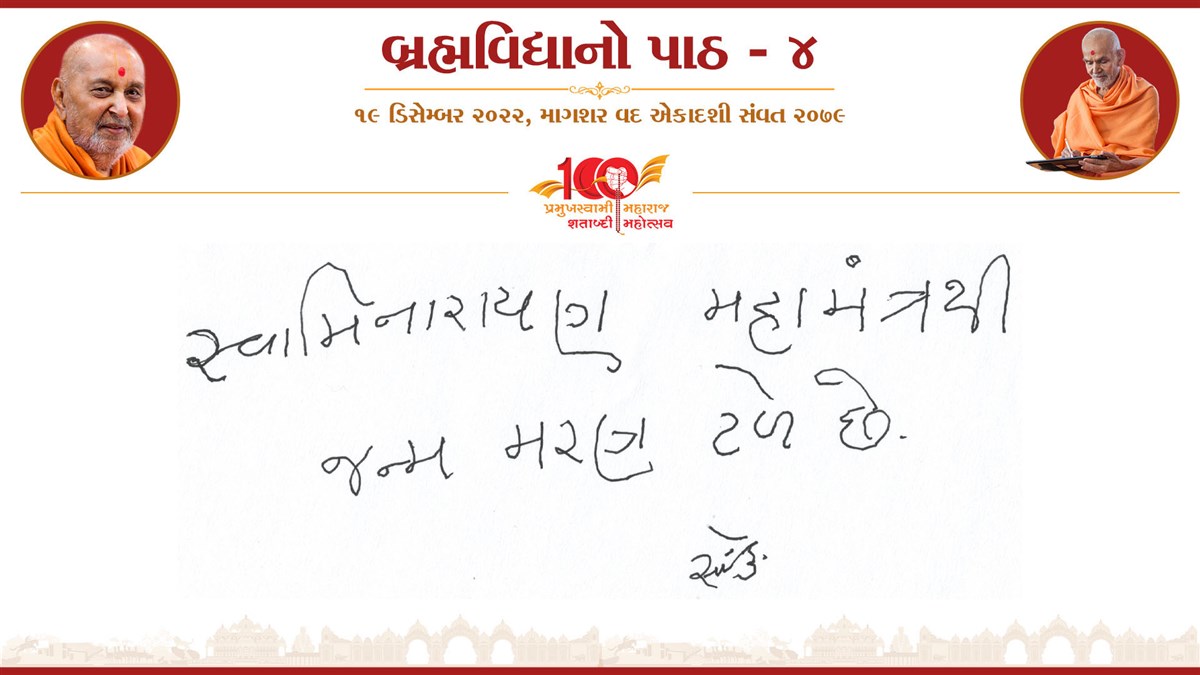 બ્રહ્મવિદ્યાનો પાઠ - ૪
૧૯ ડિસેમ્બર ૨૦૨૨, માગશર વદ એકાદશી સંવત ૨૦૭૯
100
પ્રમુખસ્વામી મહારાજ
શતાબ્દી મહોત્સવ
સ્વામિનારાયણ મહામંત્રથી
જન્મ મરણ ટળે છે.